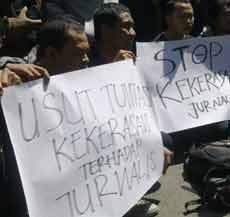 USUT TUNTAS
KEKERASAN
TERHADAP
JURNALIS
STOP
KEKERA
JURNAL